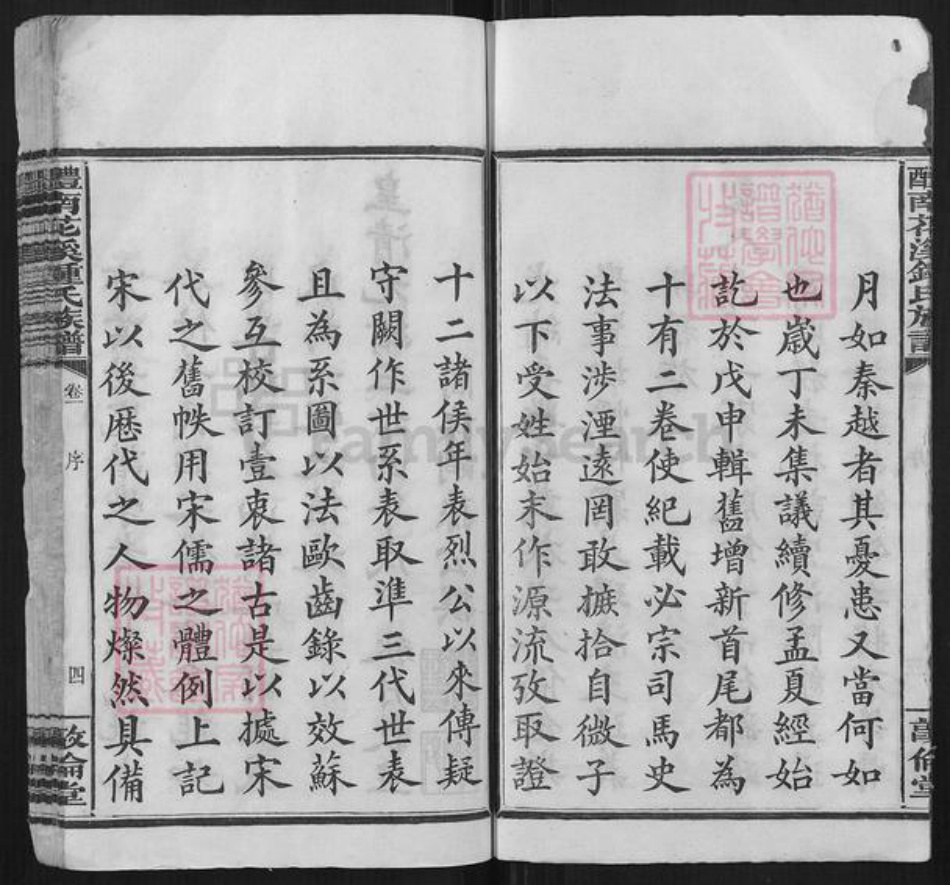 醴南花溪鍾氏族譜
月如秦越者其憂患又當何如
也歲丁未集議續修孟夏經始
訖於戊申輯舊增新首尾都為
十有二卷使紀載必宗司馬史
法事涉湮遠罔敢摭拾自微子
以下受姓始末作源流攷取證
敦倫堂
十二諸侯年表烈公以來傳疑
守闕作世系表取準三代世表
且為系圖以法歐齒錄以效蘇
參互校訂壹衷諸古是以據宋
代之舊帙用宋儒之體例上記
宋以後歷代之人物燦然具備
醴南花溪鍾氏族譜
卷一
序
四
敦倫堂
familysearch